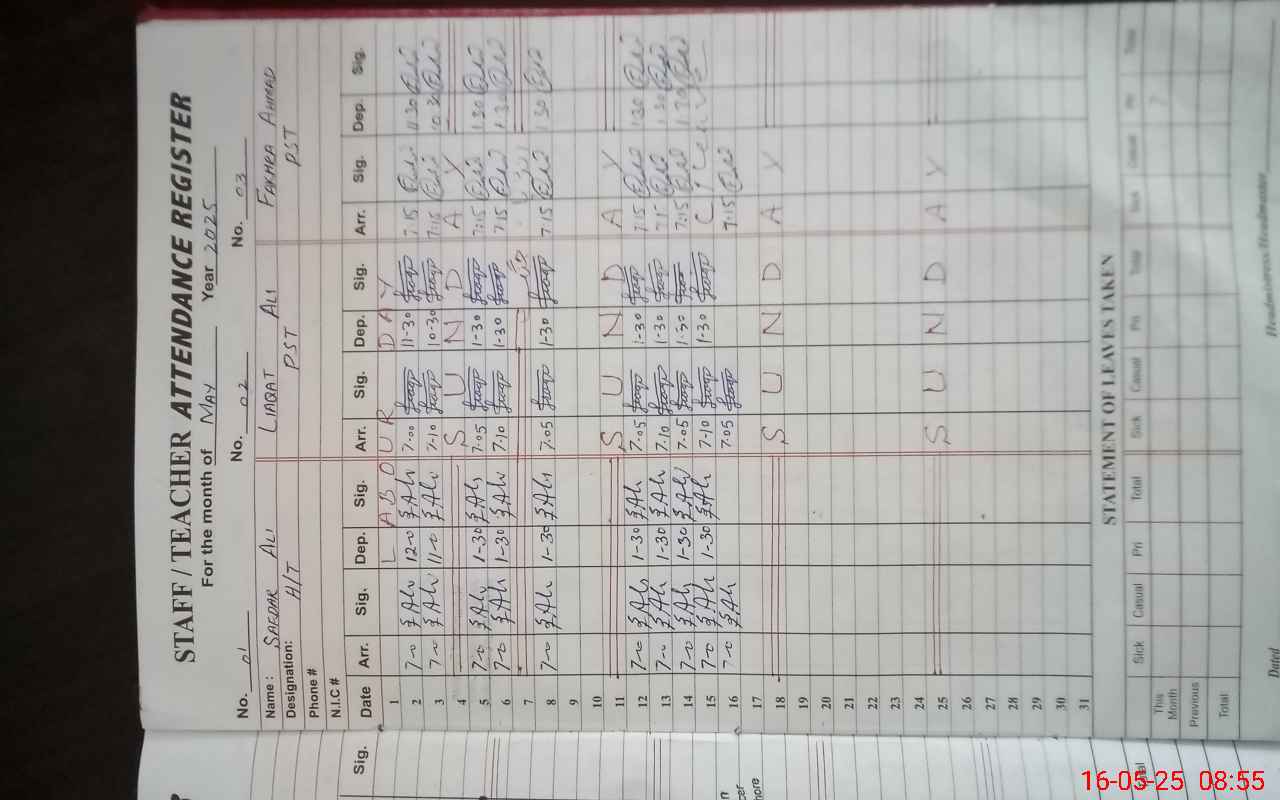 STAFF / TEACHER ATTENDANCE REGISTER
For the month of MAY Year 2025
No. 01 No. 02 No. 03
Name: SAFDAR ALI LIAQAT ALI FAKHRA AHMAD
Designation: H/T PST PST
Phone #
N.I.C #
Date Arr. Sig. Dep. Sig. Arr. Sig. Dep. Sig. Arr. Sig. Dep. Sig.
1 LABOUR DAY
2 7-0 12-0 7-00 11-30 7:15 11:30
3 7-0 11-0 7-10 10-30 7:15 10:30
4 SUNDAY
5 7-0 1-30 7-05 1-30 7:15 1:30
6 7-0 1-30 7-10 1-30 7:15 1:30
7
8 7-0 1-30 7-05 1-30 7:15 1:30
9
10
11 SUNDAY
12 7-0 1-30 7-05 1-30 7:15 1:30
13 7-0 1-30 7-10 1-30 7:15 1:30
14 7-0 1-30 7-05 1-30 7:15 1:30
15 7-0 1-30 7-10 1-30 C/Leave
16 7-0 7-05 7:15
17
18 SUNDAY
19
20
21
22
23
24
25 SUNDAY
26
27
28
29
30
31
STATEMENT OF LEAVES TAKEN
Sick Casual Pri Total Sick Casual Pri Total Sick Casual Pri Total
This Month
Previous
Total
Dated Headmistress/Headmaster
Sig.
16-05-25 08:55